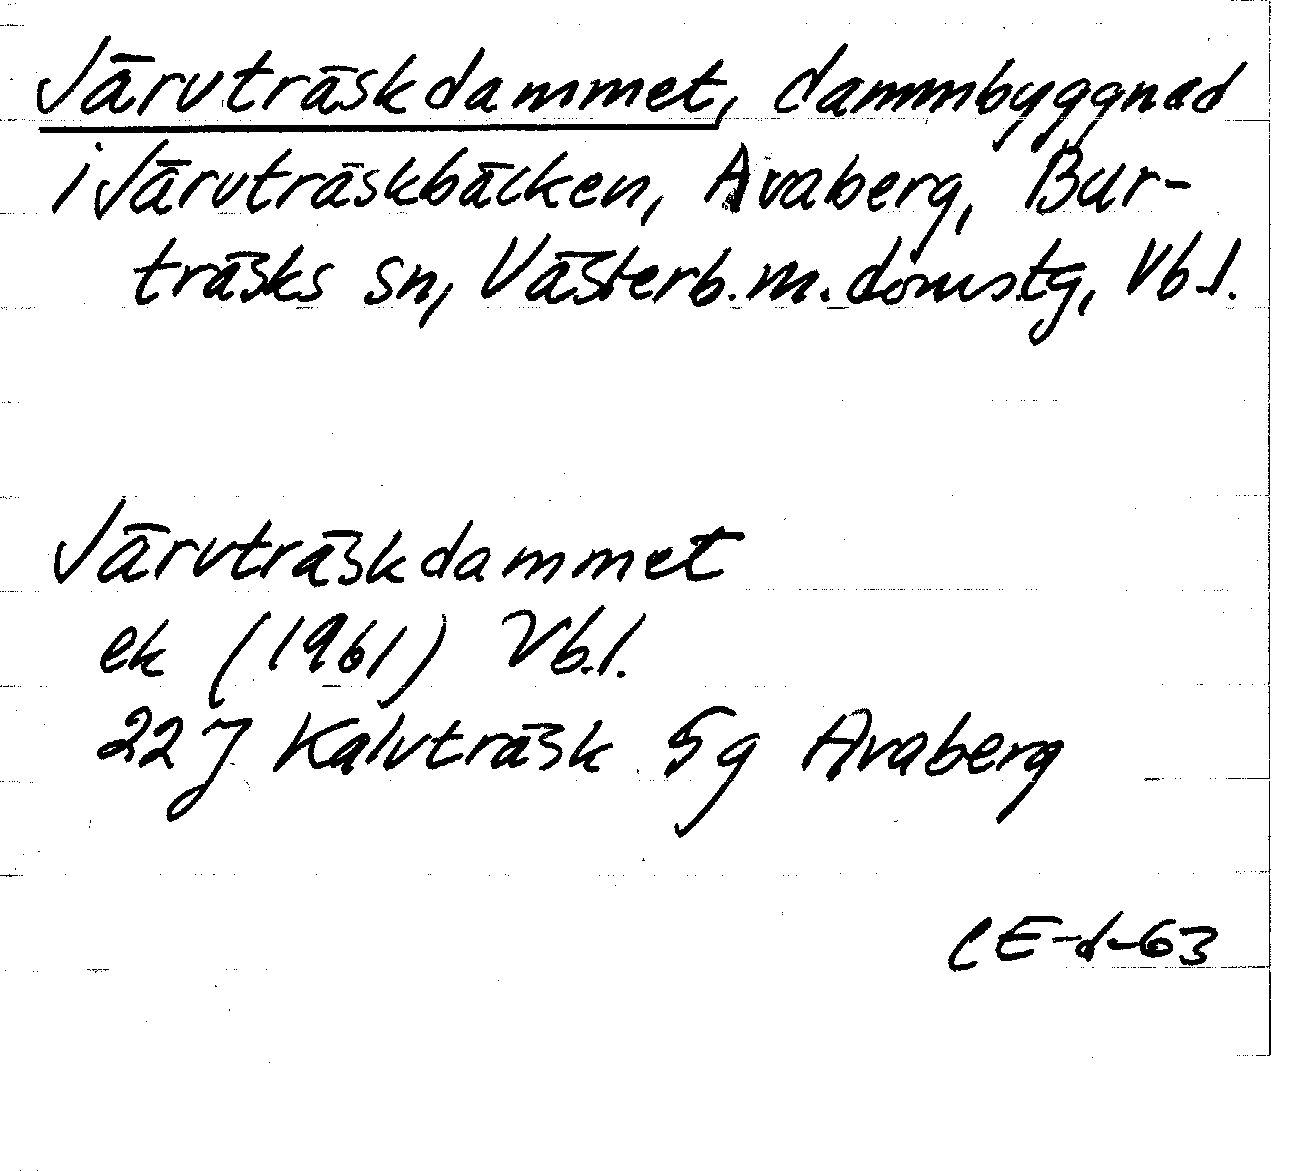 Järvträskdammet, dammbyggnad
i Järvträskbäcken, Avaberg, Bur-
träsks sn, Västerb. m. domstg, Vb. l.
Järvträskdammet
ek (1961) Vb. l.
22 J Kalvträsk 5g Avaberg
CE-d-63